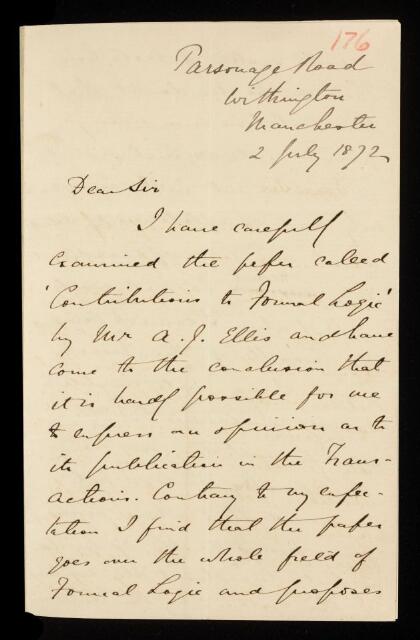 176
Parsonage Road
Withington
Manchester
2 July 1872
Dear Sir
I have carefully
examined the paper called
'Contributions to Formal Logic'
by Mr A. J. Ellis and have
come to the conclusion that
it is hardly possible for me
to express an opinion as to
its publication in the Trans-
actions. Contrary to my expec-
tation I find that the paper
goes over the whole field of
Formal Logic and proposes